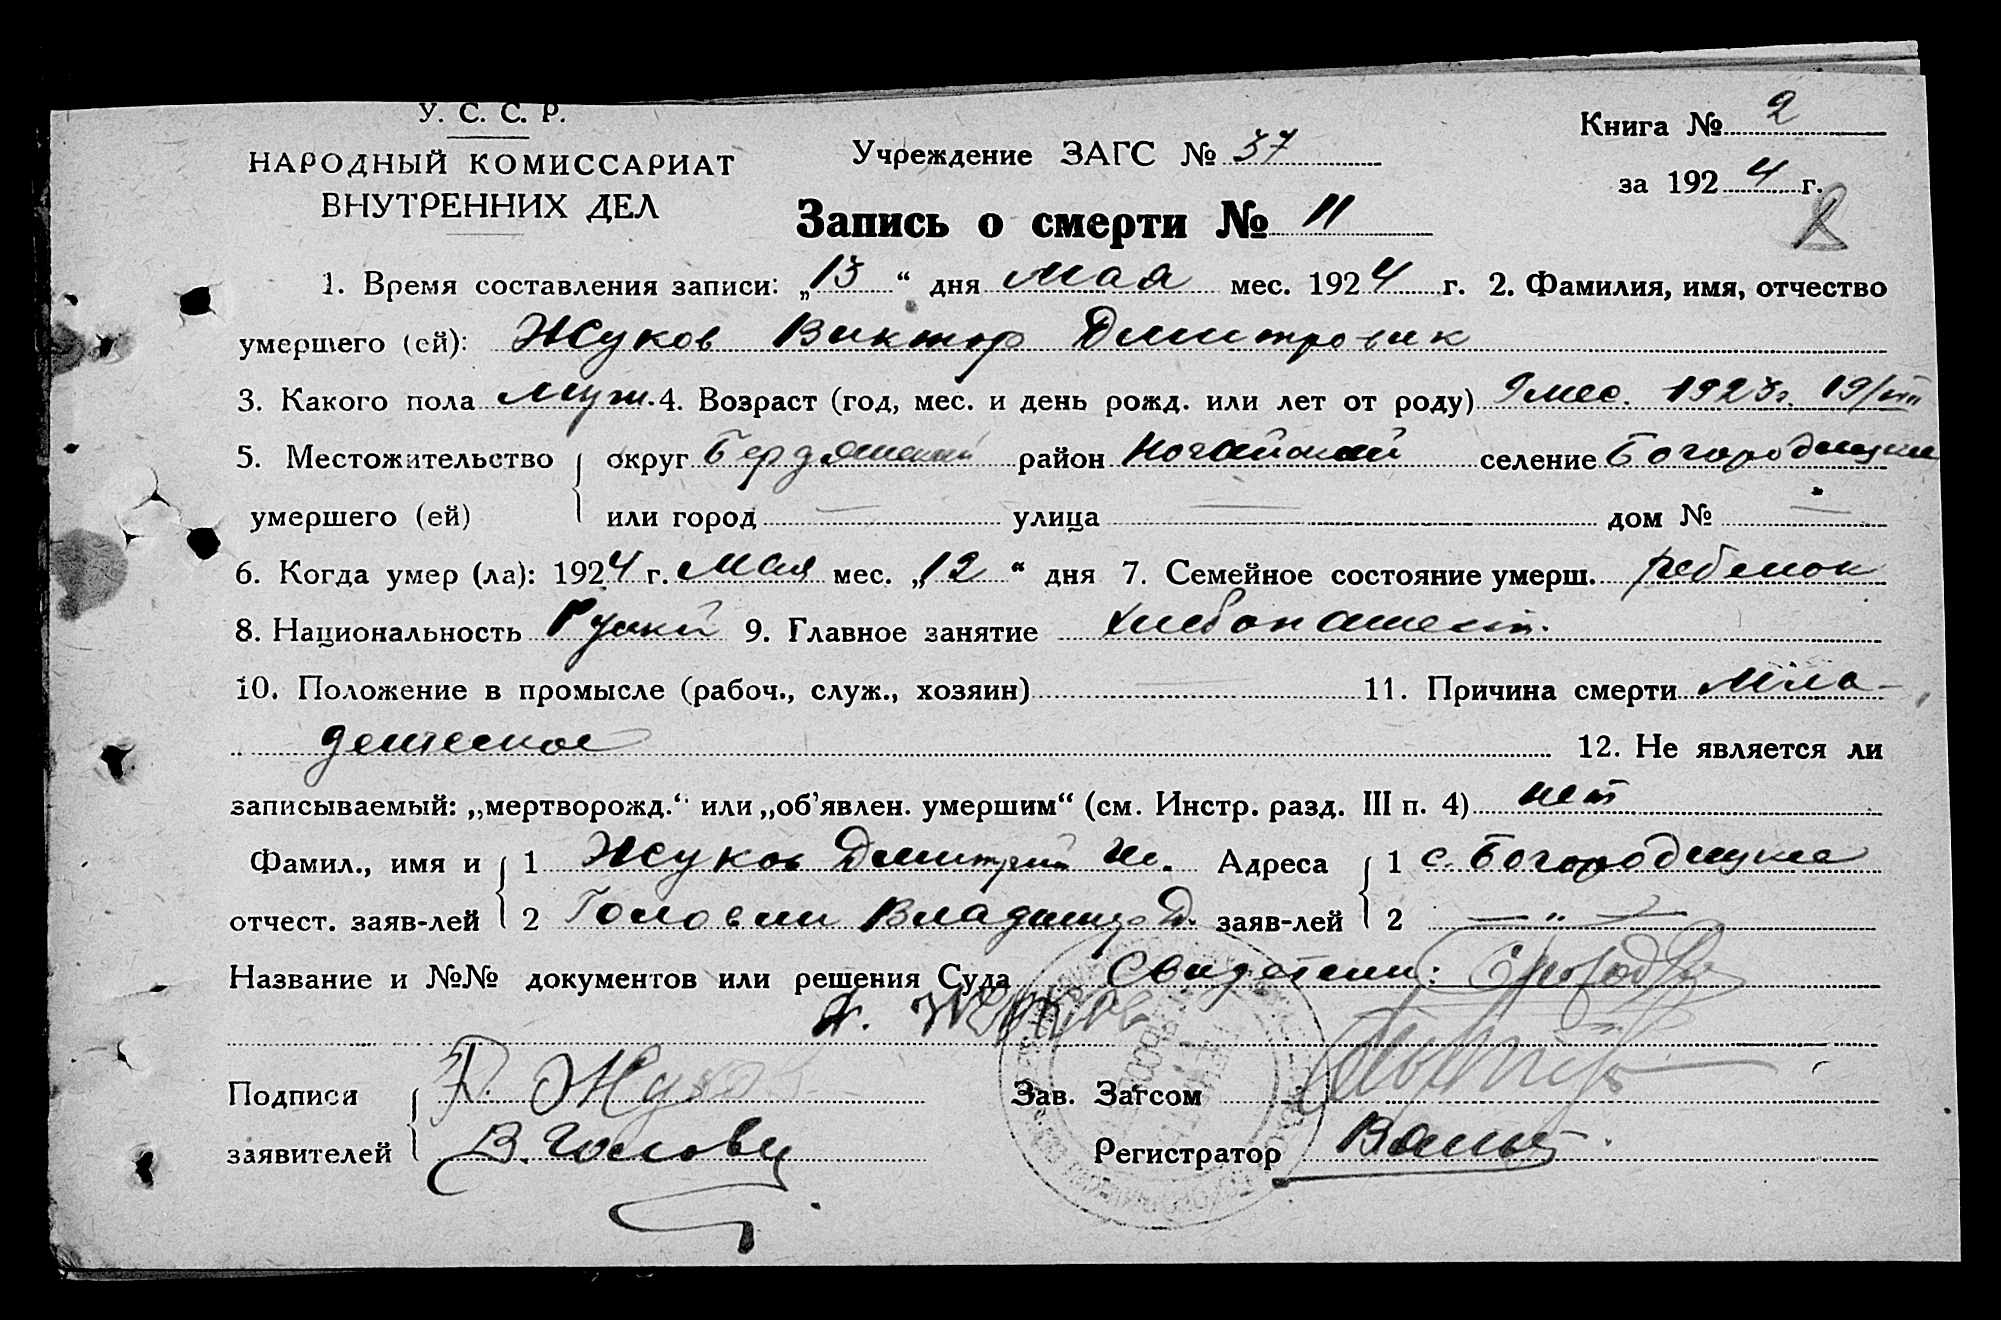 У. С. С. Р.
НАРОДНЫЙ КОМИССАРИАТ
ВНУТРЕННИХ ДЕЛ
Учреждение ЗАГС № 37
Книга № 2
за 1924 г.
Запись о смерти № 11
1. Время составления записи: „13“ дня Мая мес. 1924 г. 2. Фамилия, имя, отчество
умершего (ей): Жуков Виктор Дмитрович
3. Какого пола муж. 4. Возраст (год, мес. и день рожд. или лет от роду) 9 мес. 1923 г. 19/VIII
5. Местожительство округ Бердянский район Ногайский селение Богородицкое
умершего (ей) или город — улица — дом № —
6. Когда умер (ла): 1924 г. Мая мес. „12“ дня 7. Семейное состояние умерш. ребенок
8. Национальность Руский 9. Главное занятие хлебопашест.
10. Положение в промысле (рабоч., служ., хозяин) — 11. Причина смерти Мла-
денческое 12. Не является ли
записываемый: „мертворожд.“ или „об’явлен. умершим“ (см. Инстр. разд. III п. 4) нет
Фамил., имя и 1 Жуков Дмитрий Ив. Адреса 1 с. Богородицкое
отчест. заяв-лей 2 Головин Владимир Д. заяв-лей 2 — „ —
Название и №№ документов или решения Суда Свидетели:
Подписи Д. Жуков Зав. Загсом
заявителей В. Головин Регистратор